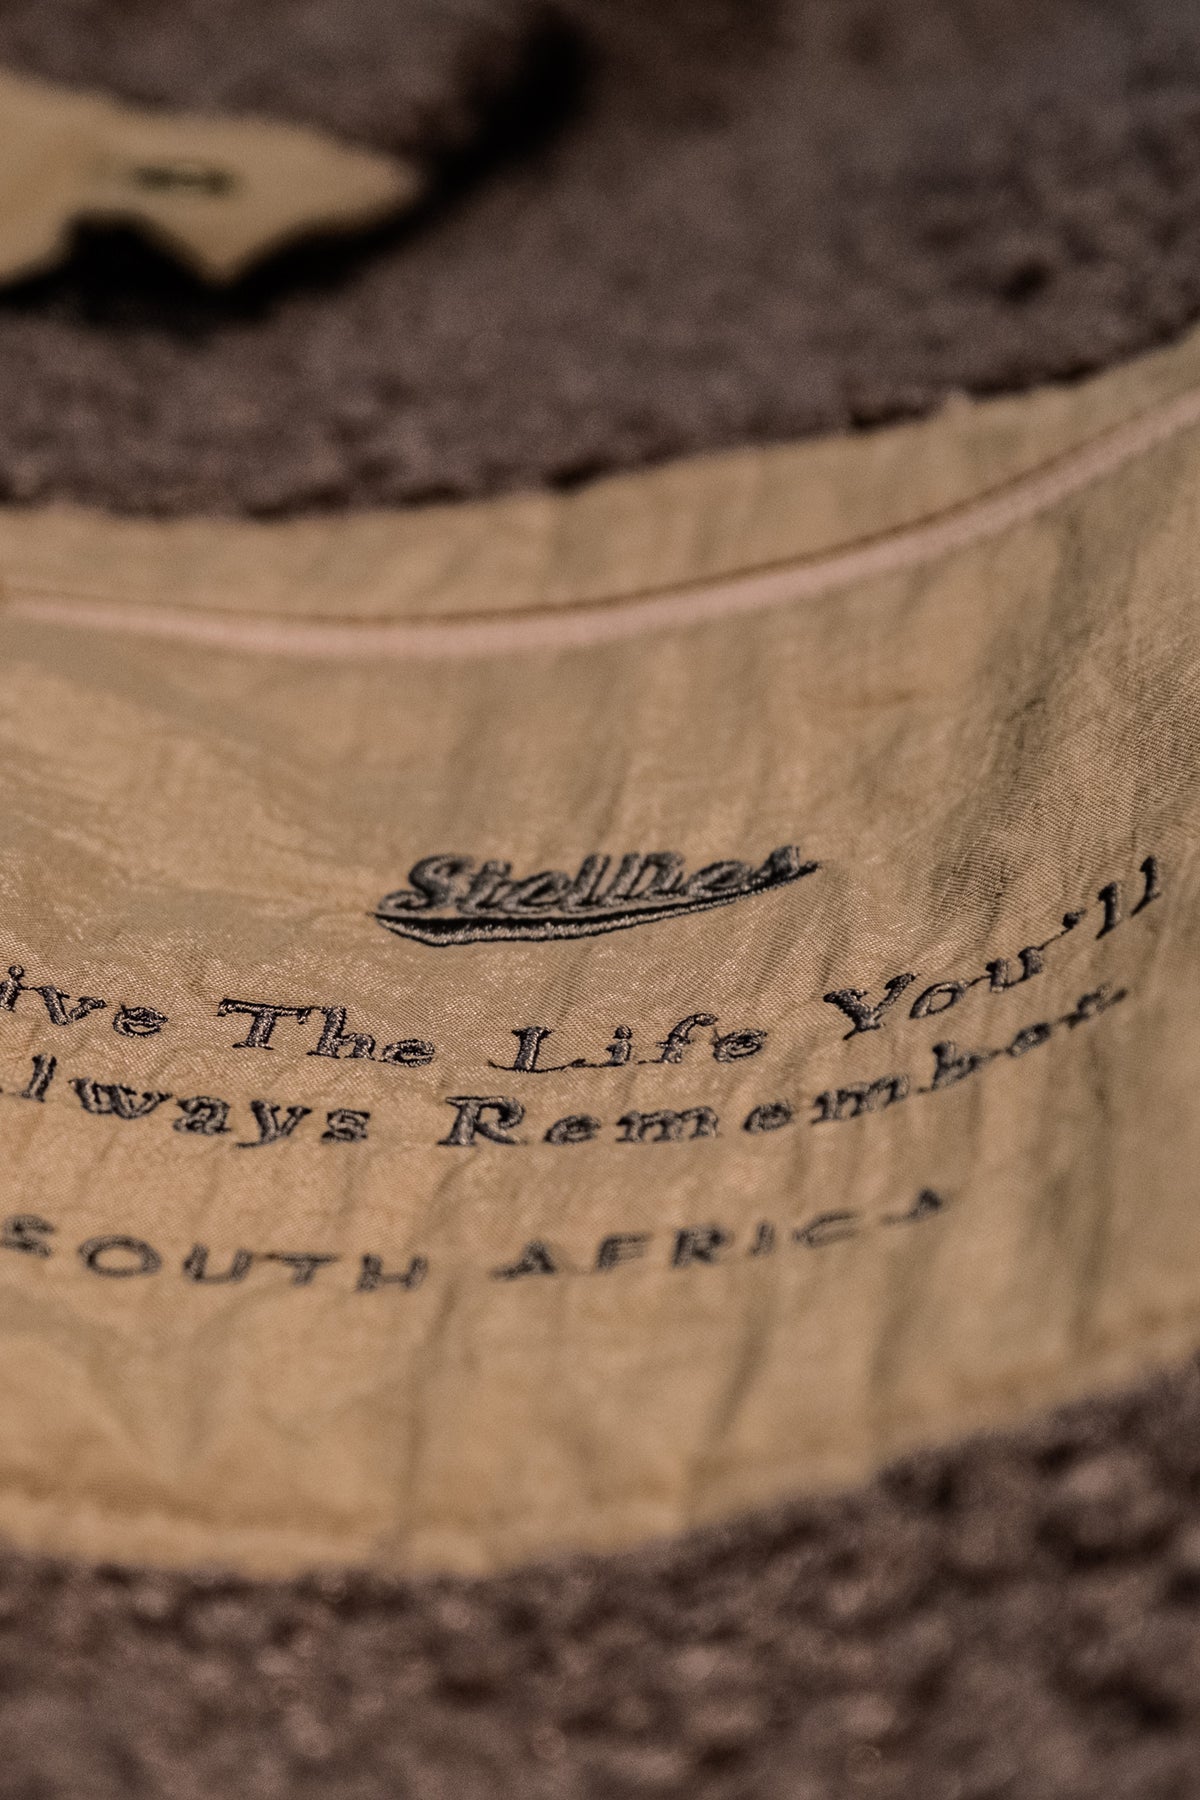 Stellies
ive The Life You'll
lways Remember
SOUTH AFRICA